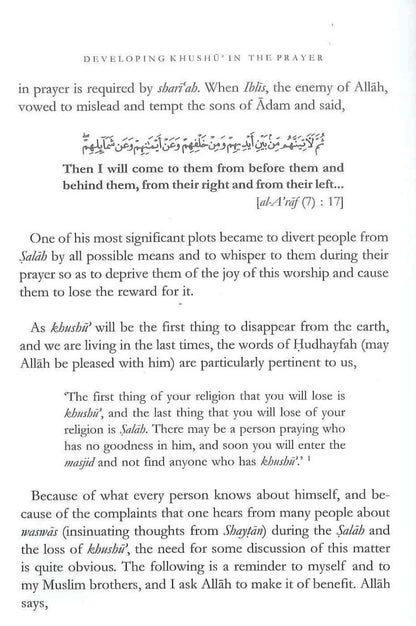 DEVELOPING KHUSHŪ' IN THE PRAYER
in prayer is required by sharī'ah. When Iblīs, the enemy of Allāh,
vowed to mislead and tempt the sons of Ādam and said,
ثُمَّ لَآتِيَنَّهُم مِّنۢ بَيْنِ أَيْدِيهِمْ وَمِنْ خَلْفِهِمْ وَعَنْ أَيْمَٰنِهِمْ وَعَن شَمَآئِلِهِمْ ۖ
Then I will come to them from before them and
behind them, from their right and from their left...
[al-A'rāf (7) : 17]
One of his most significant plots became to divert people from
Ṣalāh by all possible means and to whisper to them during their
prayer so as to deprive them of the joy of this worship and cause
them to lose the reward for it.
As khushū' will be the first thing to disappear from the earth,
and we are living in the last times, the words of Ḥudhayfah (may
Allāh be pleased with him) are particularly pertinent to us,
'The first thing of your religion that you will lose is
khushū', and the last thing that you will lose of your
religion is Ṣalāh. There may be a person praying who
has no goodness in him, and soon you will enter the
masjid and not find anyone who has khushū'.' 1
Because of what every person knows about himself, and be-
cause of the complaints that one hears from many people about
waswās (insinuating thoughts from Shayṭān) during the Ṣalāh and
the loss of khushū', the need for some discussion of this matter
is quite obvious. The following is a reminder to myself and to
my Muslim brothers, and I ask Allāh to make it of benefit. Allāh
says,